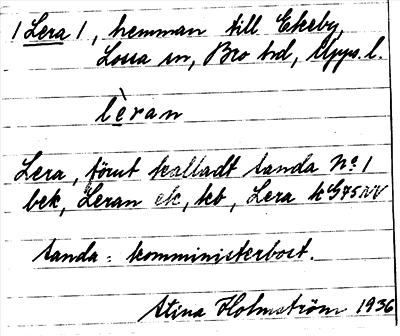 /Lera/, hemman till Ekeby,
Lossa sn, Bro hd, Upps. l.
lèran
Lera, förut kalladt Sanda No 1
bek, Leran ek, kb, Lera k G75NV
Sanda = komministerbost.
Stina Holmström 1936